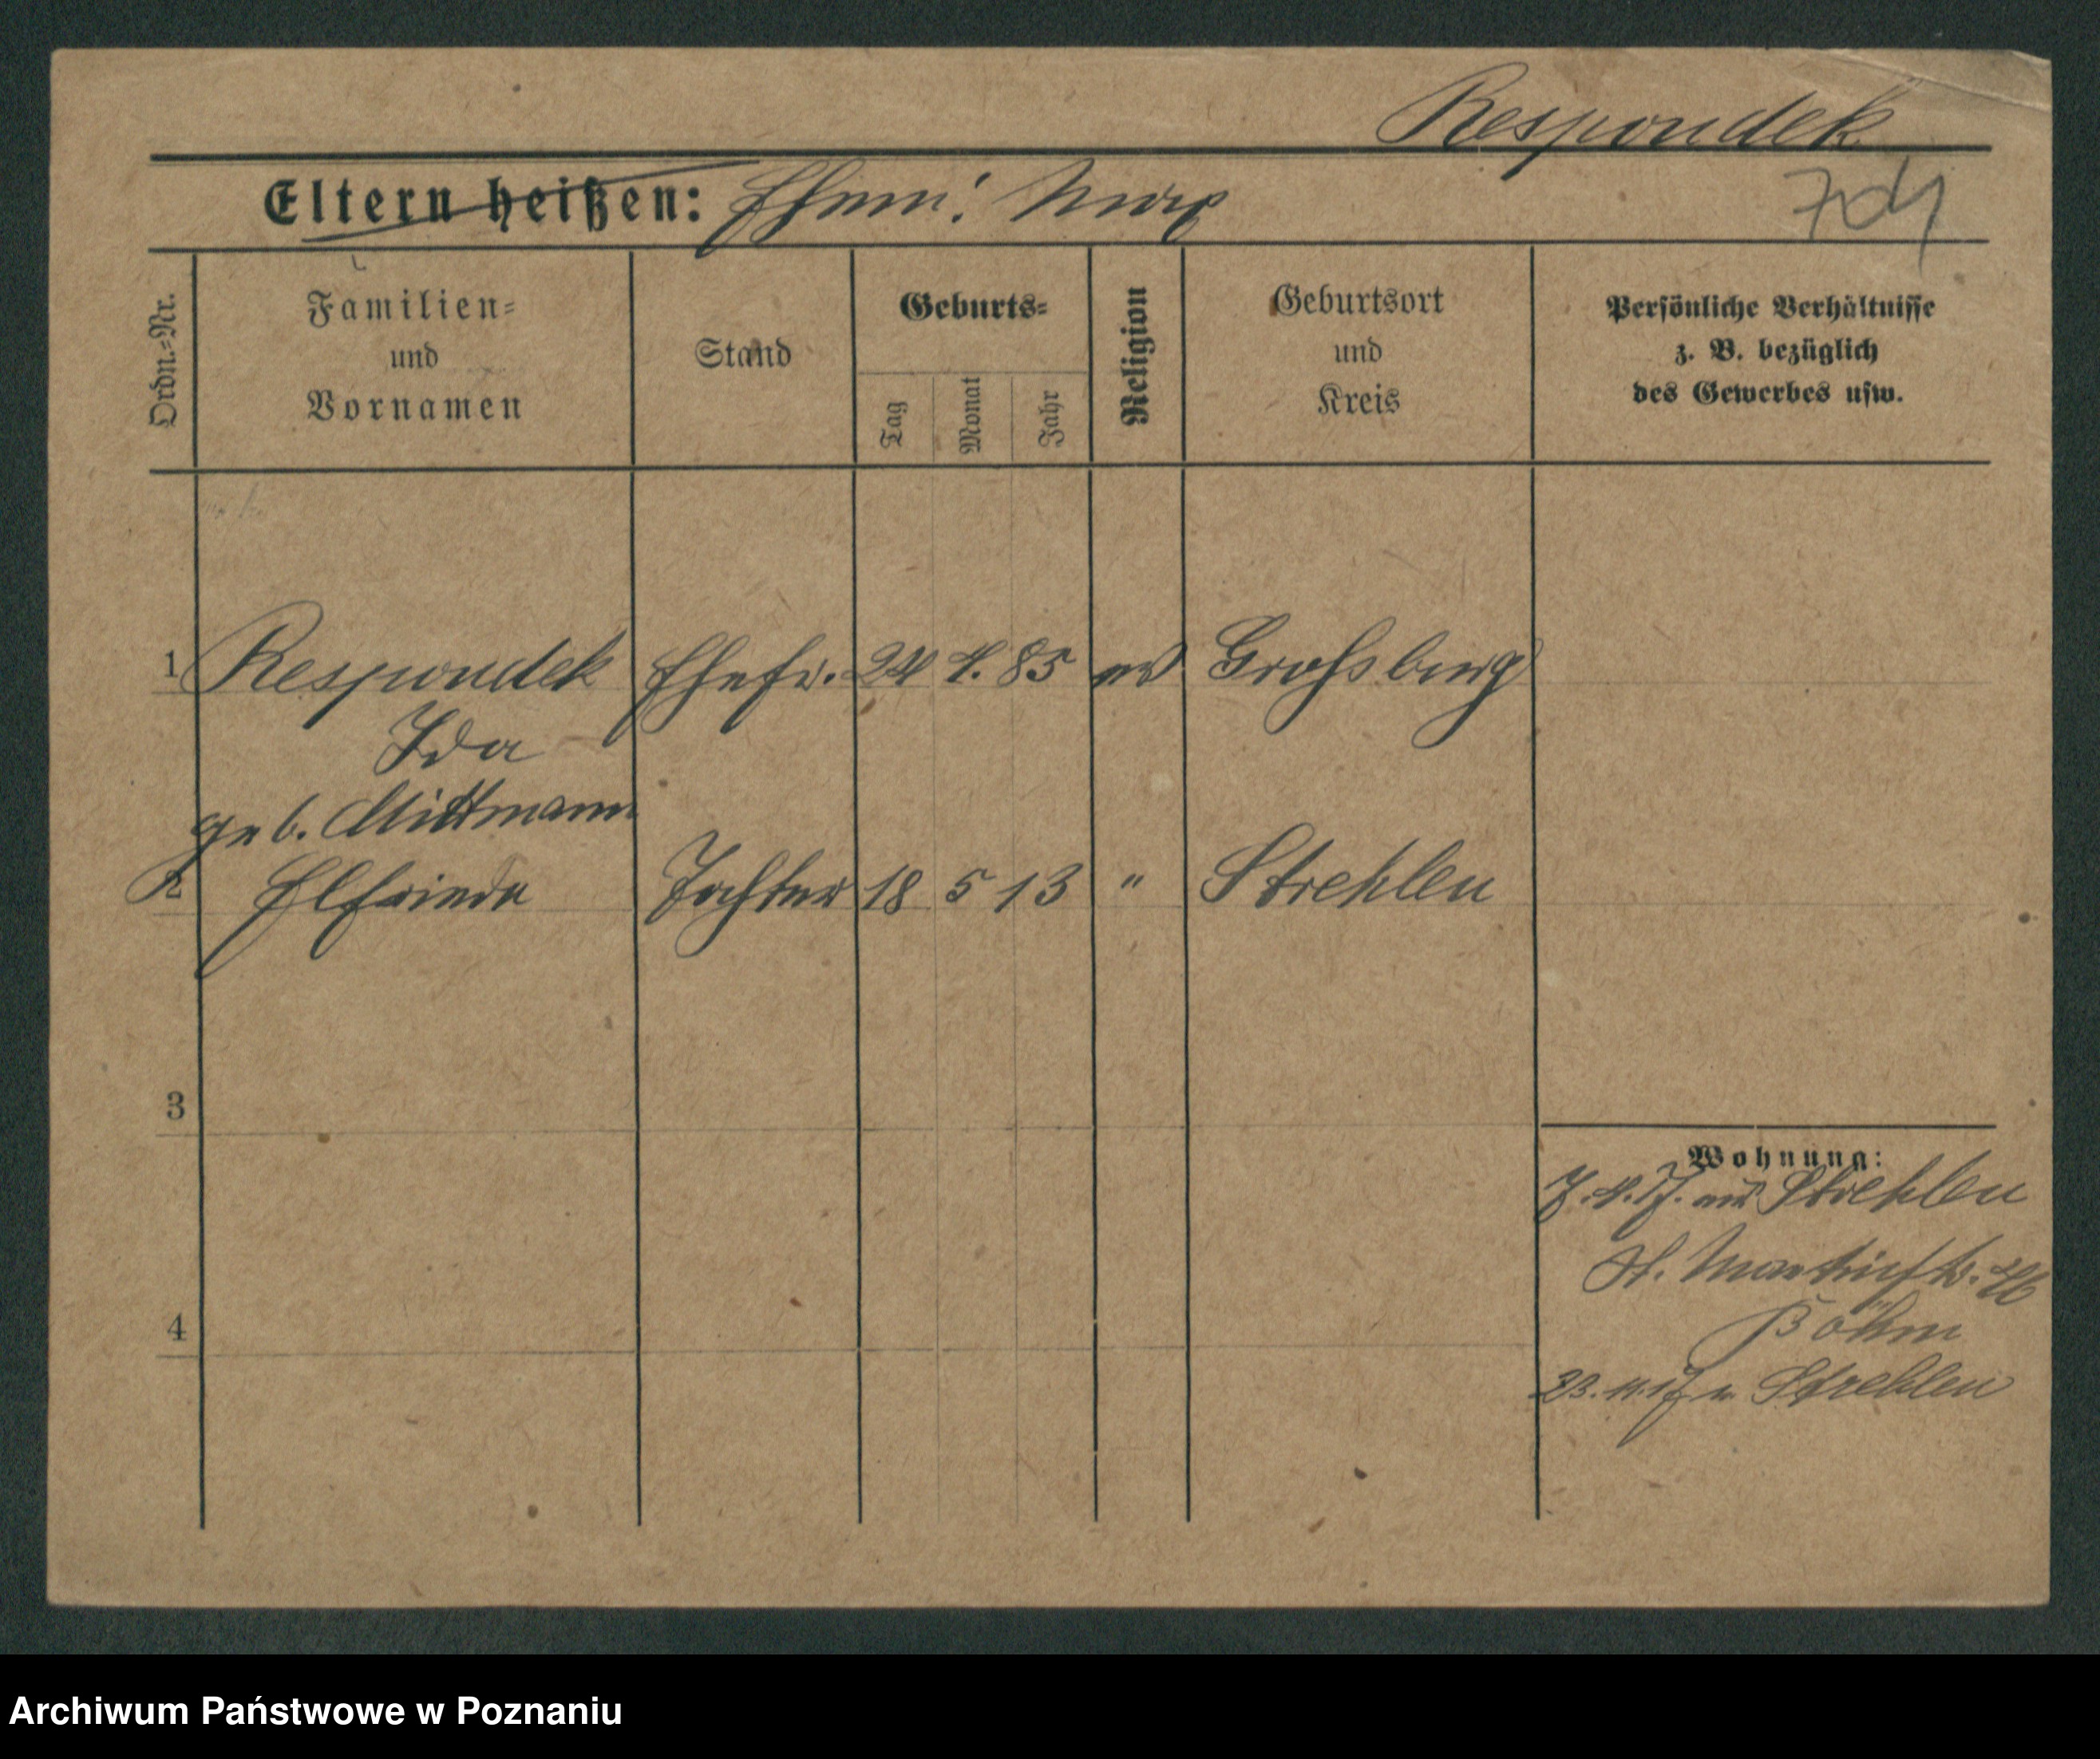 Respondek
Eltern heißen: Ehem: Max
704
Ordn.-Nr.
Familien-
und
Vornamen
Stand
Geburts-
Tag
Monat
Jahr
Religion
Geburtsort
und
Kreis
Persönliche Verhältnisse
z. B. bezüglich
des Gewerbes usw.
1 Respondek Ehefr. 24 4. 85 ev Großburg
Ida
geb. Mittmann
2 Elfriede Tochter 18 5 13 " Strehlen
3
Wohnung:
7. 4. 17. aus Strehlen
St. Martinstr. 46
Böhm
4
23. 11. 17 n. Strehlen
Archiwum Państwowe w Poznaniu